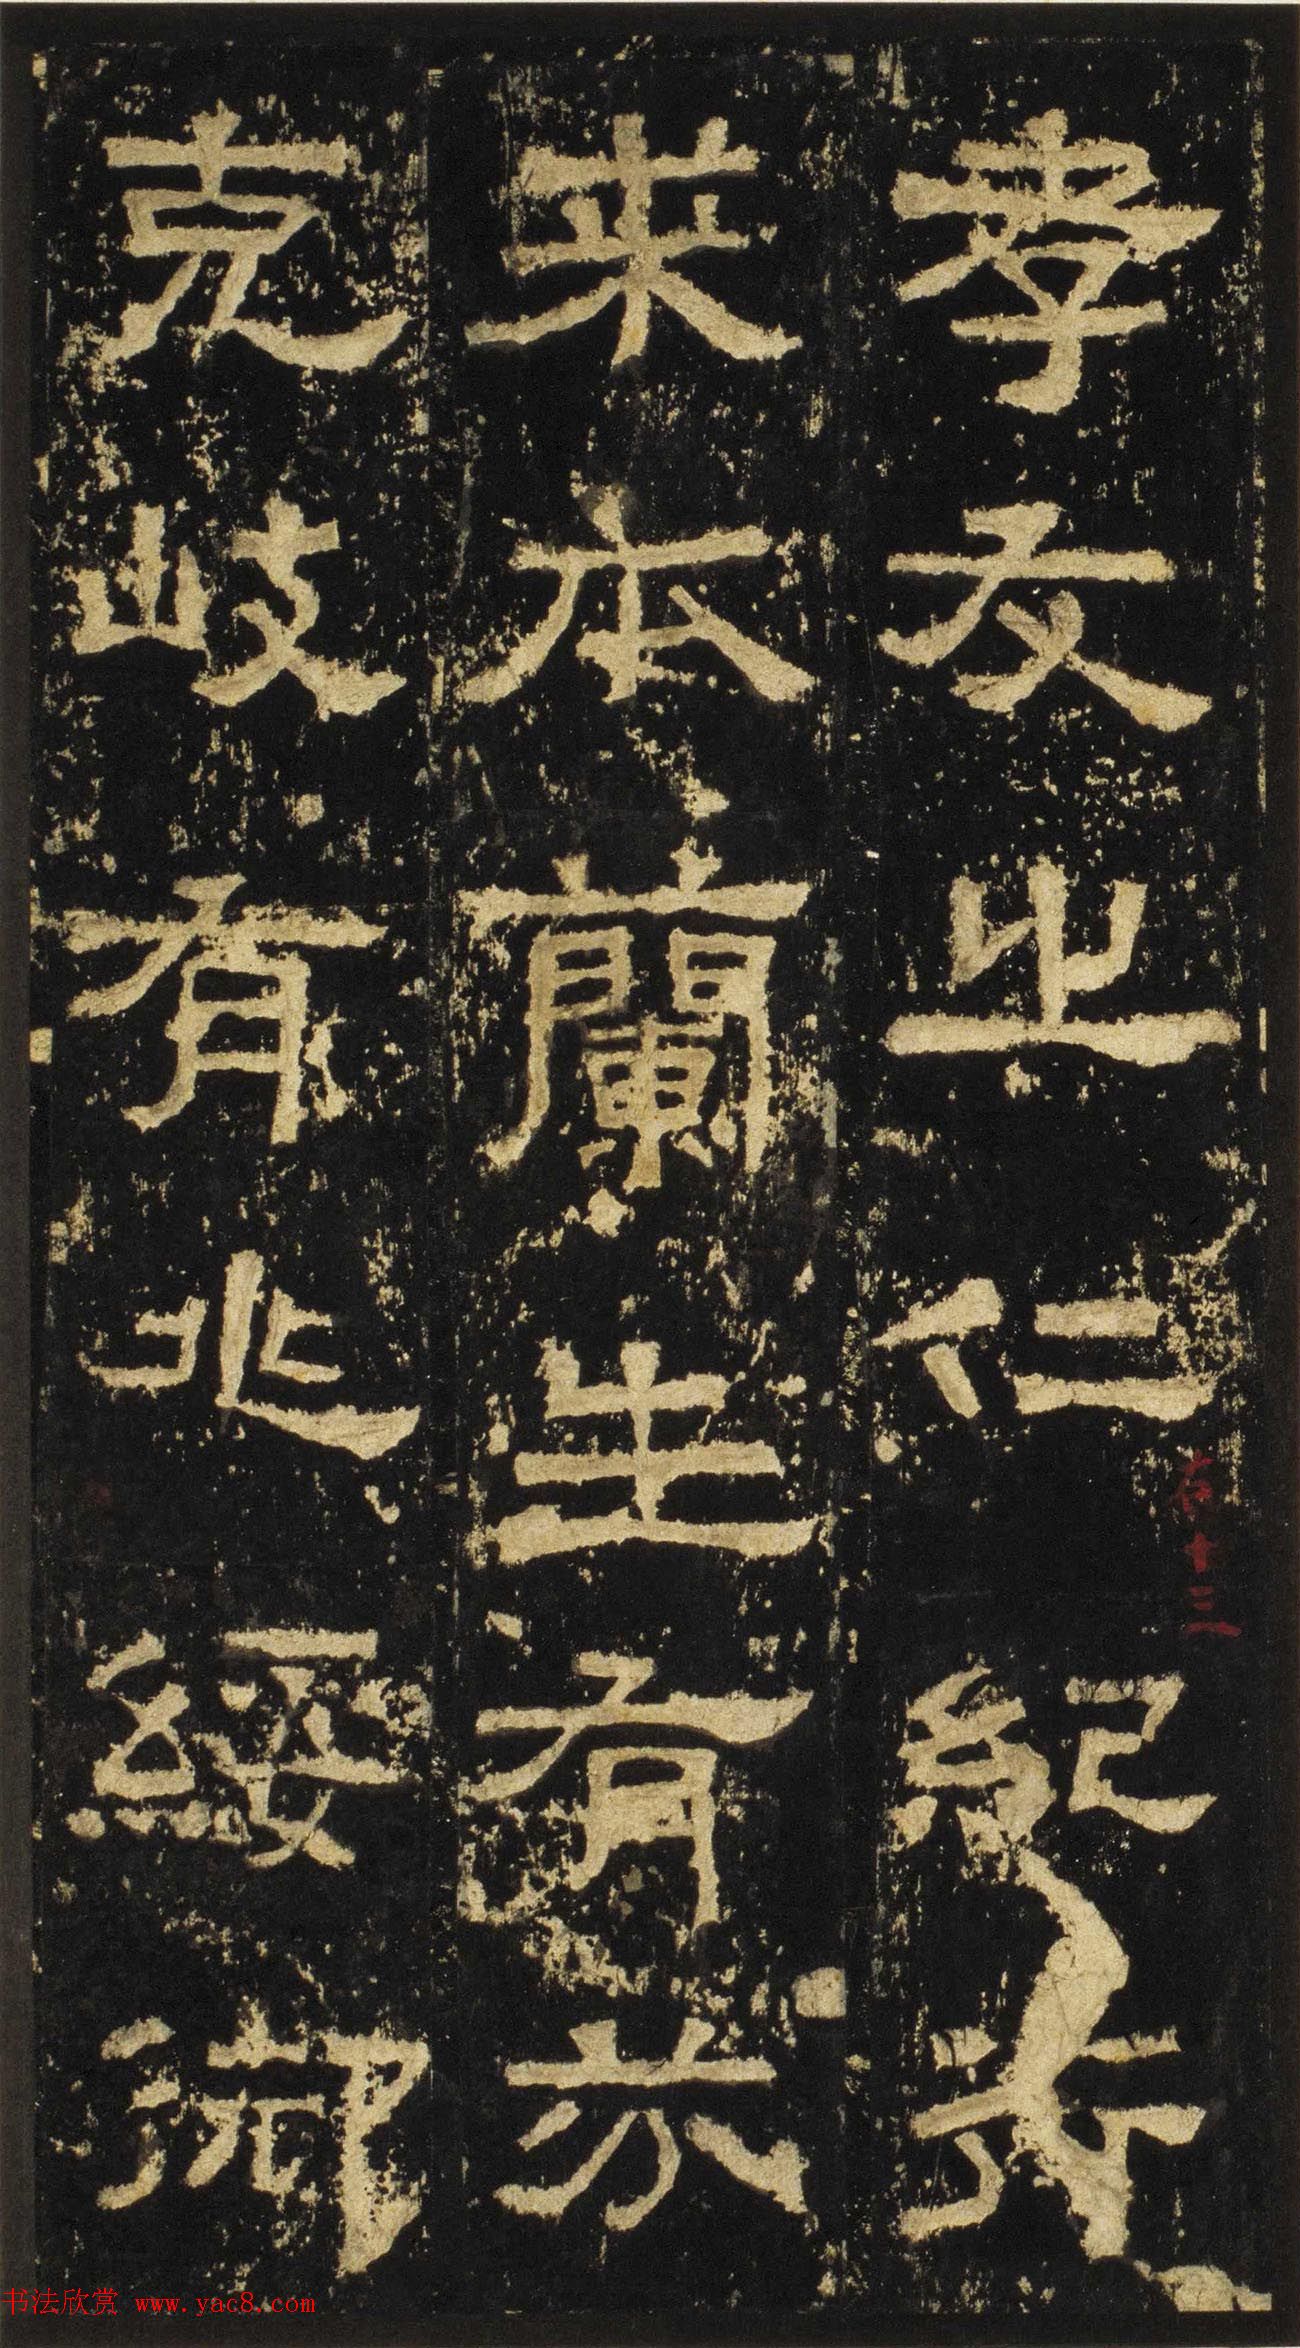 孝友之仁紀行
来本蘭生有芬
克岐有兆綏御
十三
书法欣赏 www.yac8.com